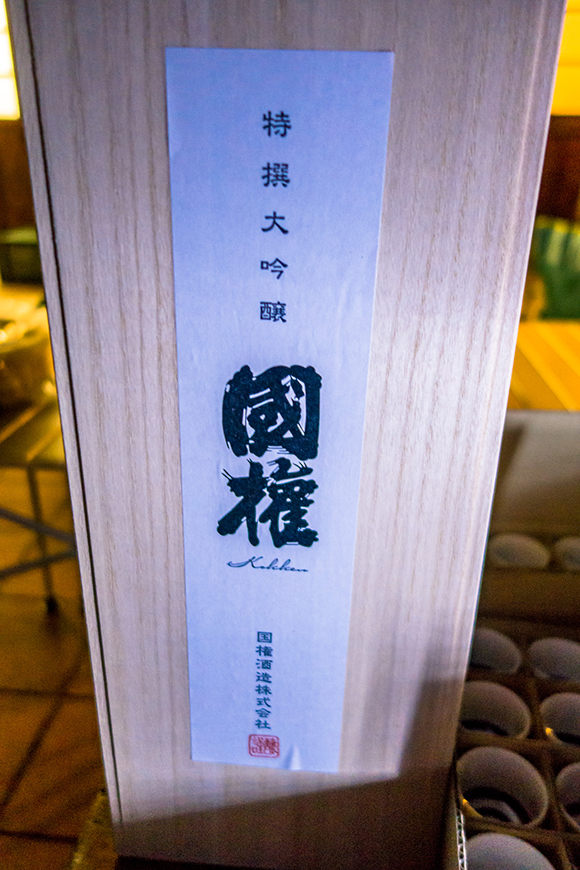 特撰大吟醸
國権
Kokken
国権酒造株式会社